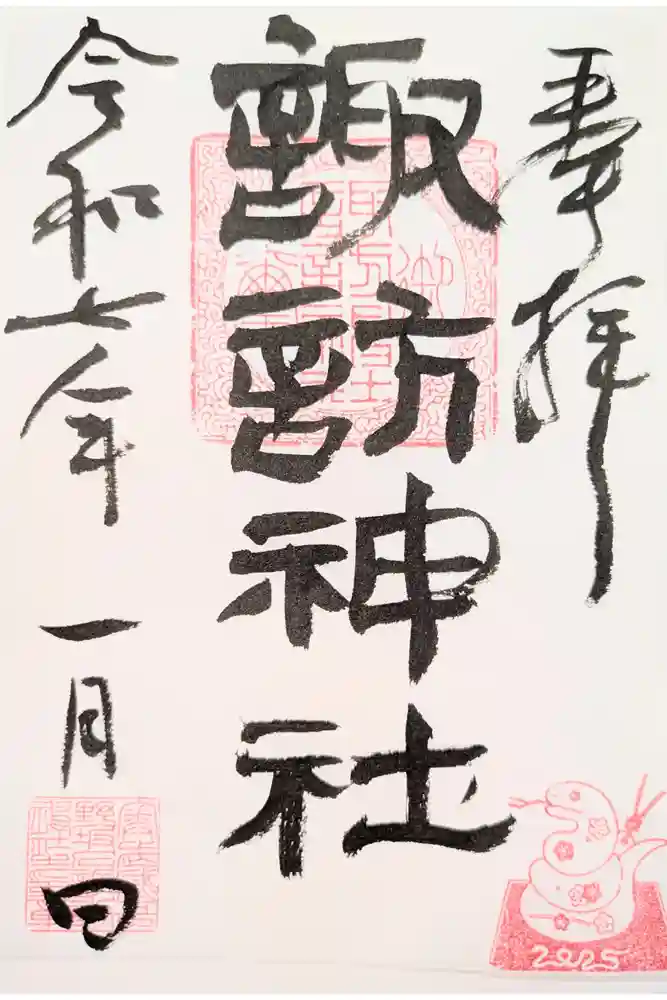 奉拝
諏訪神社
令和七年 一月 日
2025